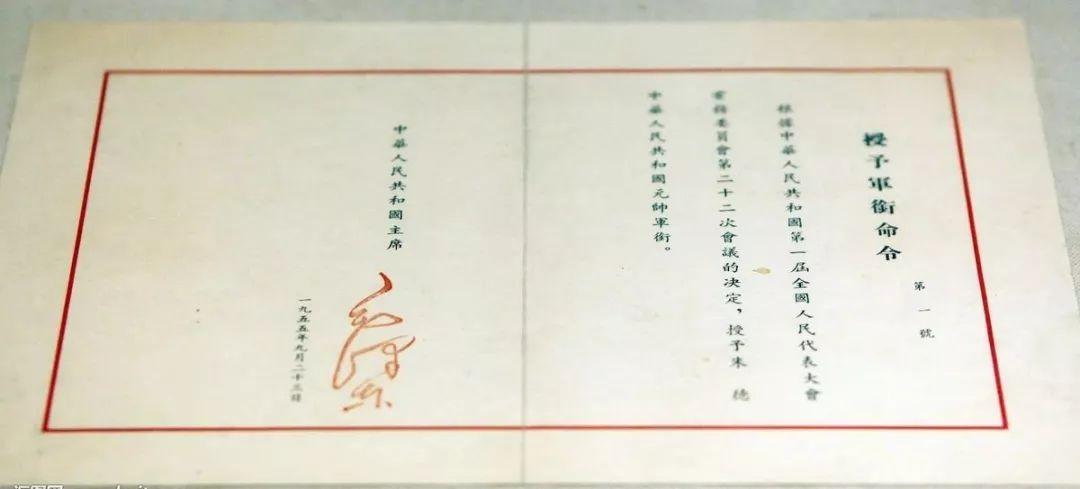 授予軍銜命令
第一號
根據中華人民共和國第一屆全國人民代表大會
常務委員會第二十二次會議的决定，授予朱 德
中華人民共和國元帥軍銜。
中華人民共和國主席
毛澤東
一九五五年九月二十三日